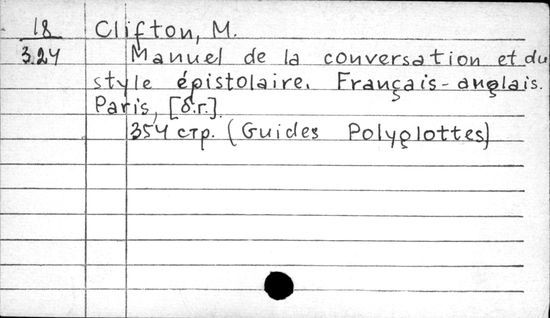 18 Clifton, M.
3.24 Manuel de la conversation et du
style épistolaire. Français-anglais.
Paris, [б.г.].
354 стр. (Guides Polyglottes)